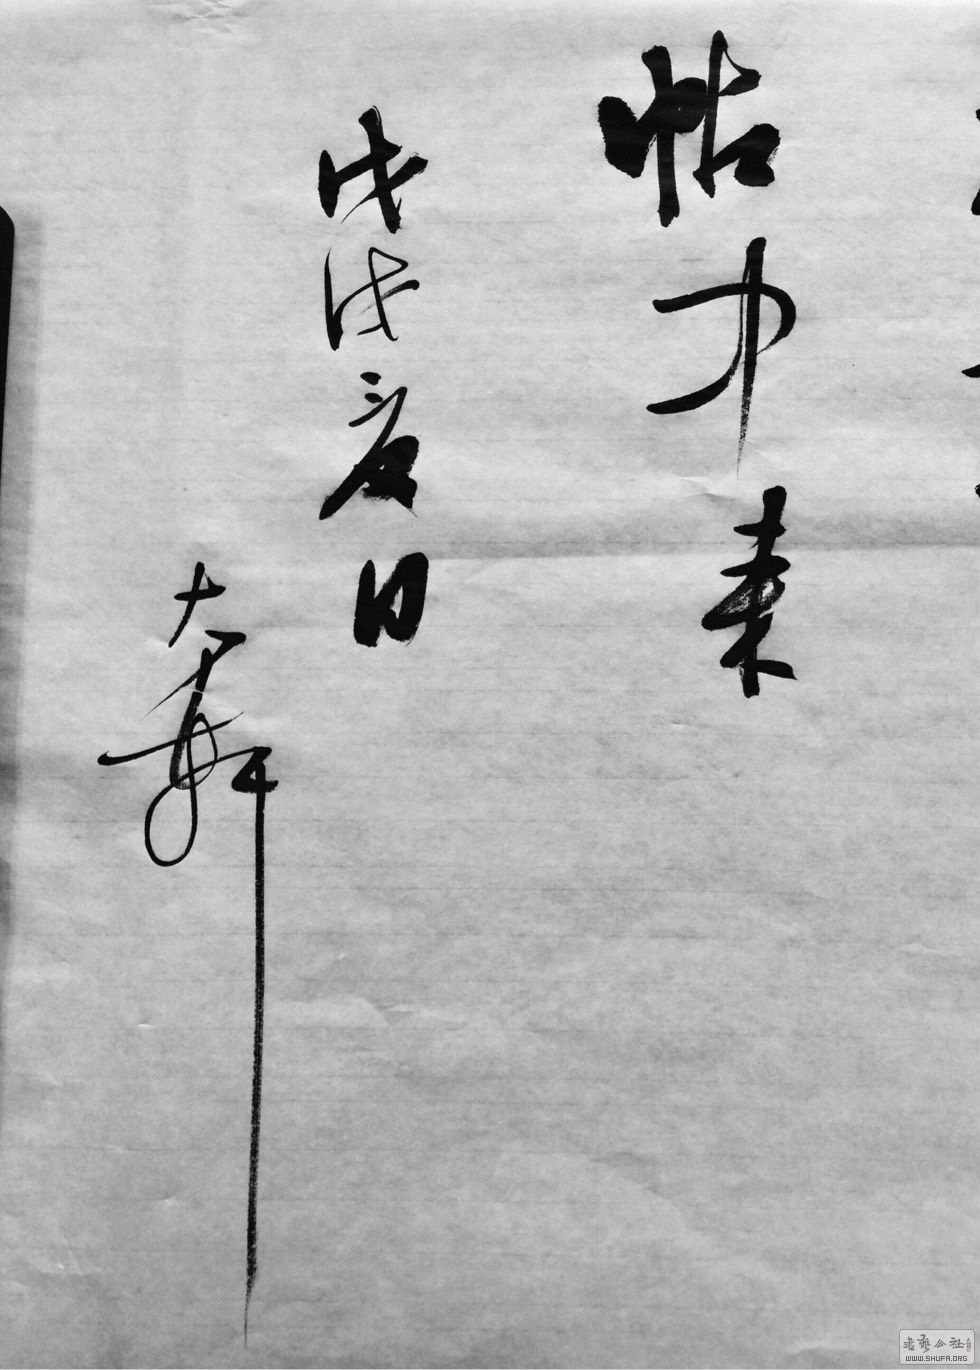 帖中来
戊戌夏日
大舞
书艺公社
WWW.SHUFA.ORG